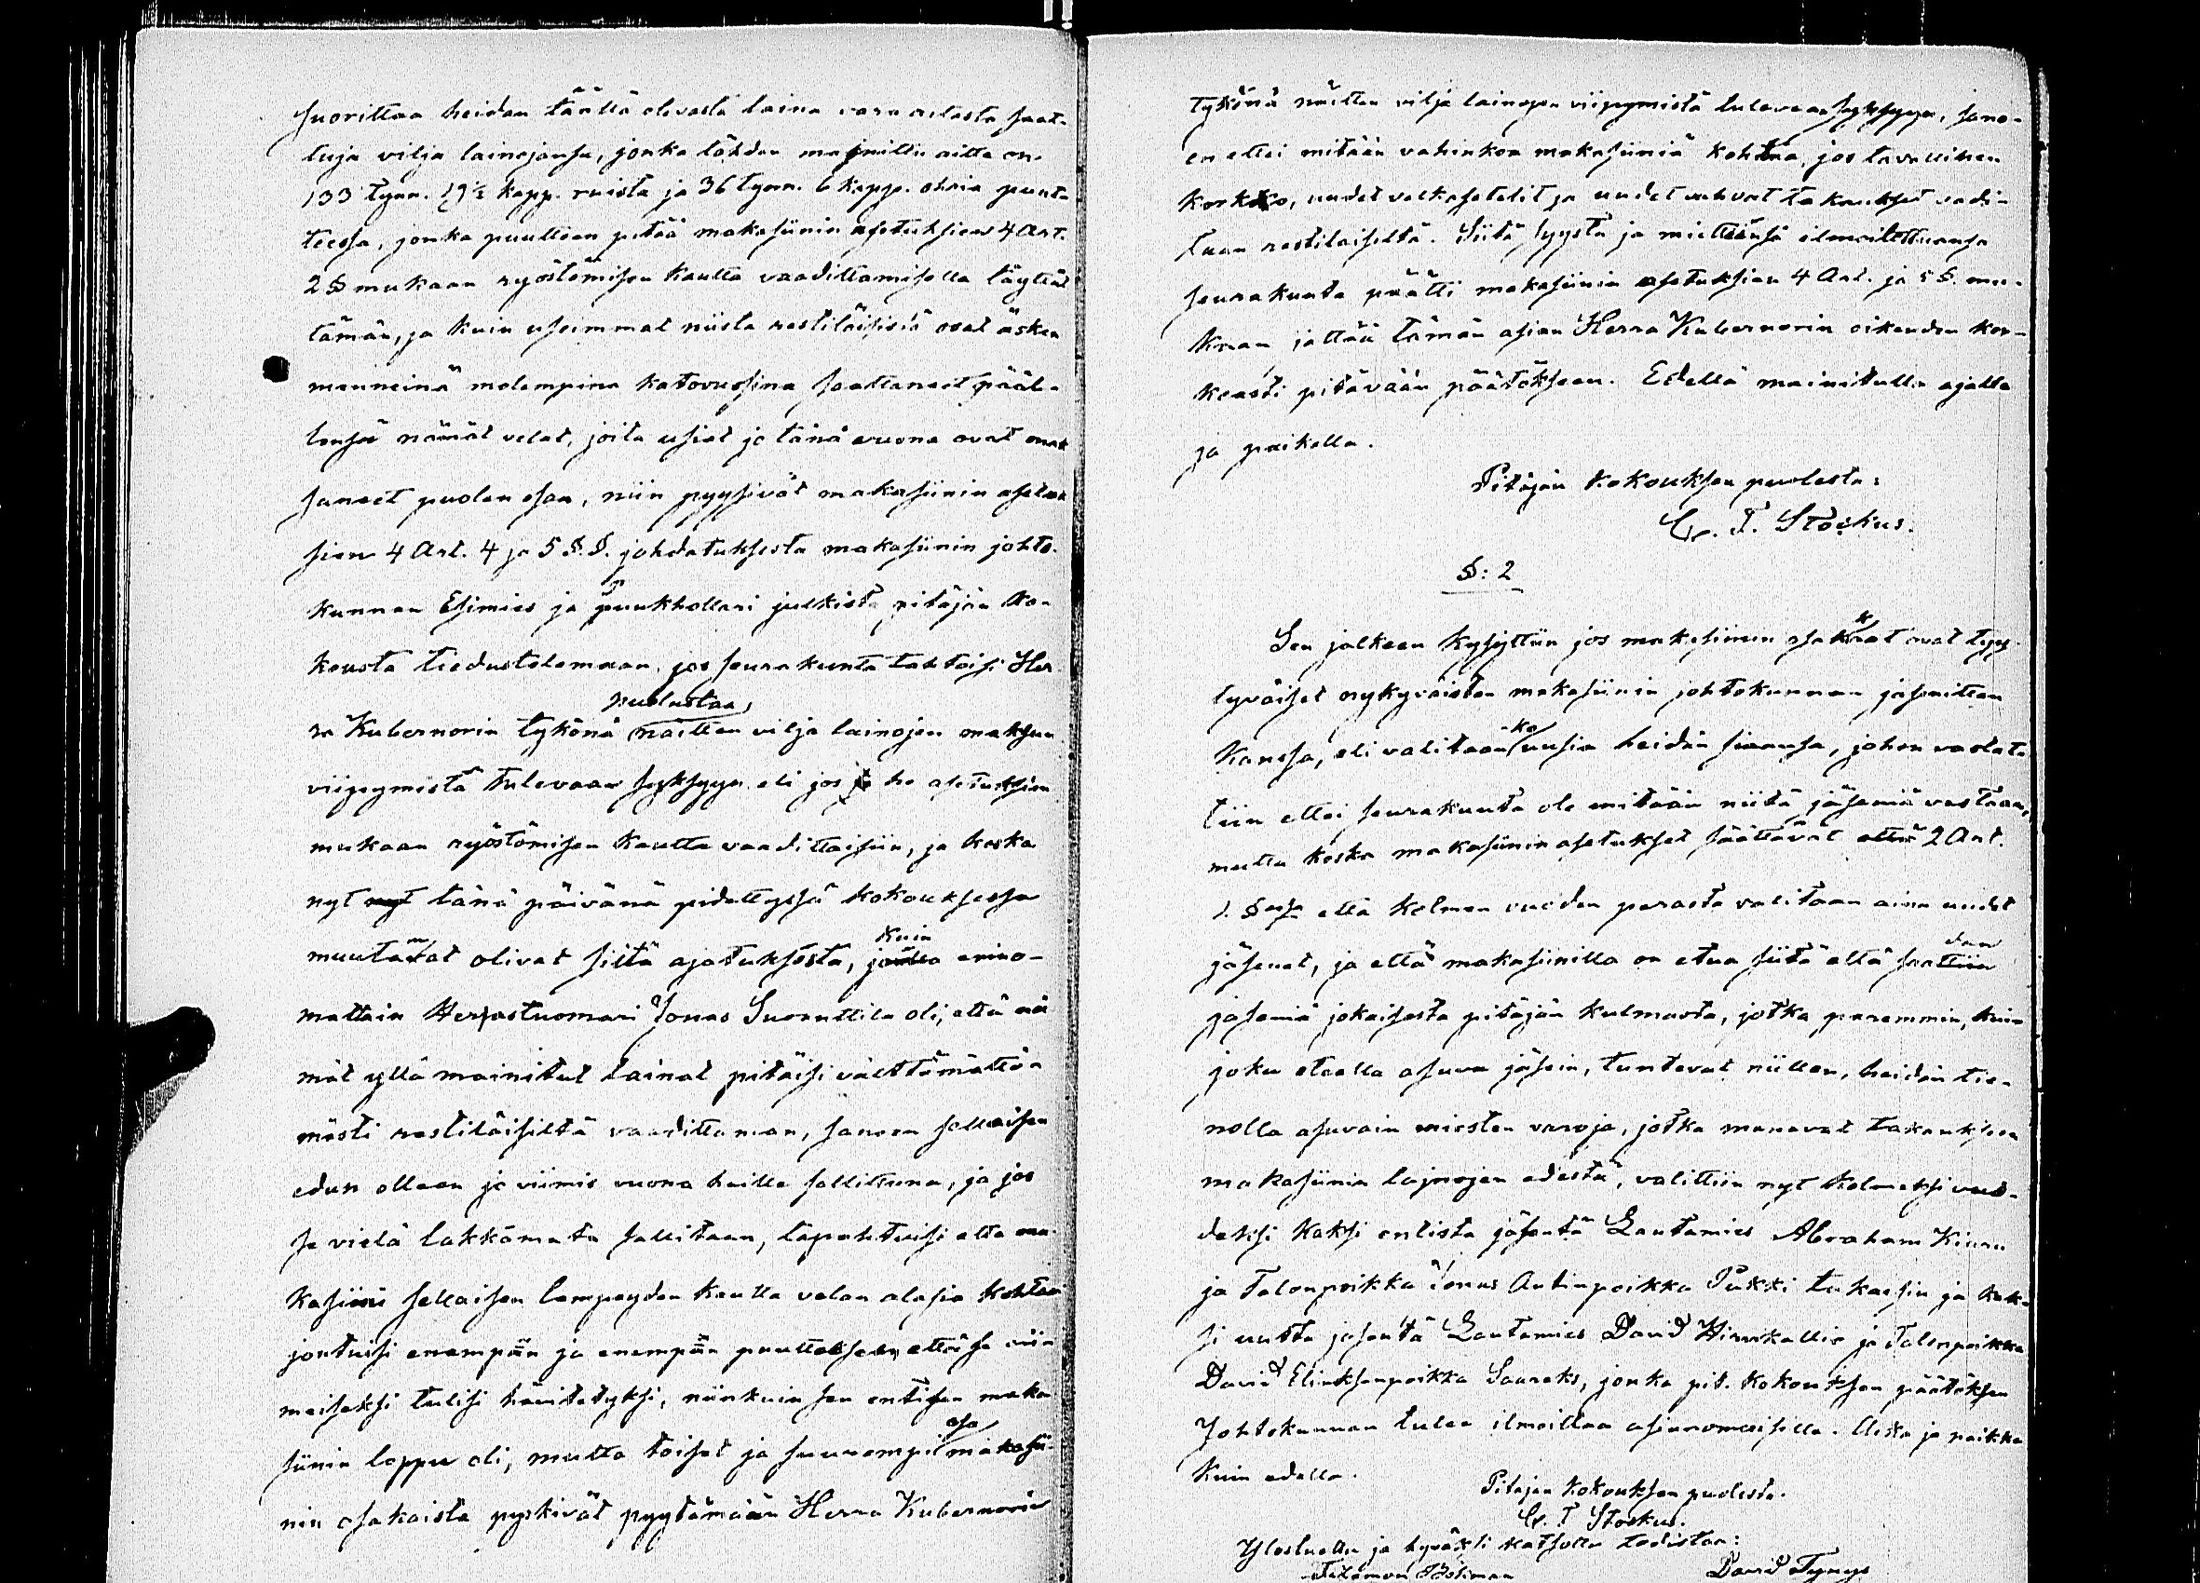 suorittaa heidan täällä olevasta laina vara aitasta saat-
tuja vilja lainojansa, jonka tähden ma aitta on
133 tynn. 19½ kapp. ruista ja 36 tynn. 6 kapp. ohria puut-
teessa, jonka puutteen pitää makasiinin asetuksien 4 Art.
2 § mukaan ryöstämisen kautta vaadittamisella täyttä
tämän, ja kuin useimmat niista restiläisistä ovat äsken
menneinä molempina katovuosina saattaneet pääl-
lensä nämät velat, joita usiat jo tänä vuona ovat mak
saneet puolen osan, niin pyysivät makasiinin asetuk
sien 4 Art. 4 ja 5 §.§. johdatuksesta makasiinin johto-
kunnan Esimies ja puukhollari julkista pitäjän ko-
kousta tiedustelemaan, jos seurakunta tahtoisi Her
puolustaa
ra Kubernorin tykönä naitten vilja lainojen maksun
viipymistä tulevaan syksyyn eli jos he asetuksien
mukaan ryöstämisen kautta vaadittaisiin, ja koska
nyt nyt tänä päivänä pidettyssä kokouksessa
kuin
muutamat olivat siitä ajatuksesta, jonka erino-
mattain Herrastuomari Jonas Suonuttila oli, että nä
mät yllä mainitut lainat pitäisi välttämättö-
mästi restiläisiltä vaadittaman, sanoen sellaisen
edun olleen jo viimis vuona heille sallittuna, ja jos
se vielä lakkämata sallitaan, tapahtuisi että ma-
kasiini sellaisen lempeyden kautta velan alasia kohtaan
joutuisi enempän ja enempän puutteksen, että se viin
meiseksi tulisi hävitetyksi, niinkuin sen entisen maka
osa
siinin loppu oli, mutta toiset ja suurempi makasii-
nin osakaista pyskivät pyytämään Herra Kubernorin
tykönä näitten vilja lainojen viipymistä tulevaan syksyyn, sano-
en ettei mitään vahinkoa makasiiniä kohtaa, jos tavallinen
korkko, uudet velkasetelit ja uudet vahvat takaukset vadi-
taan restiläiseltä. Siitä syystä ja miettiänsä ilmoitettuansa
seurakunta päätti makasiinin asetuksien 4 Art. ja 5 §. mu-
kaan jättää tämän asian Herra Kubernorin oikeuden kor-
keasti pitävään päätökseen. Edellä mainitulla ajalla
ja paikalla.
Pitäjän kokouksen puolesta:
G. T. Stockus.
§: 2
Sen jalkeen kysyttiin jos makasiinin osakkaat ovat tyy-
tyväiset nykyväisten makasiinin johtokunnan jäsenitten
kanssa, eli valitaanko uusia heidän siaansa, johon vastat-
tiin ettei seurakunta ole mitään niitä jäseniä vastaan,
mutta koska makasiinin asetukset säättävät että 2 Art.
1. § että kolmen vuoden perästa valitaan aina uudet
dan
jäsenet, ja että makasiinilla on etua siitä että saattiin
jäseniä jokaisesta pitäjän kulmasta, jotka paremmin, kuin
joku etealla asuva jäsein, tuntevat niitten, heidän tie-
nolla asuvain miesten varoja, jotka menevat takauksen
makasiinin lajnojen edestä, valittiin nyt kolmeksi vuo-
deksi kaksi entista jäsentä Lautamies Abraham Kiuru
ja Talonpoikka Jonas Antinpoikka Pukki takasin ja kak-
si uutta jäsentä Lautamies David Hirvikallio ja Talonpoikka
David Eliaksenpoikka Saareks, jonka pit. kokouksen päätöksen
Johtokunnan tulee ilmoittaa asianomaisille. Aika ja paikka
kuin edella.
Pitäjan kokouksen puolesta.
G. T Stockus.
Ylösluettu ja hyväksi katsottu todistaa:
David Tynys